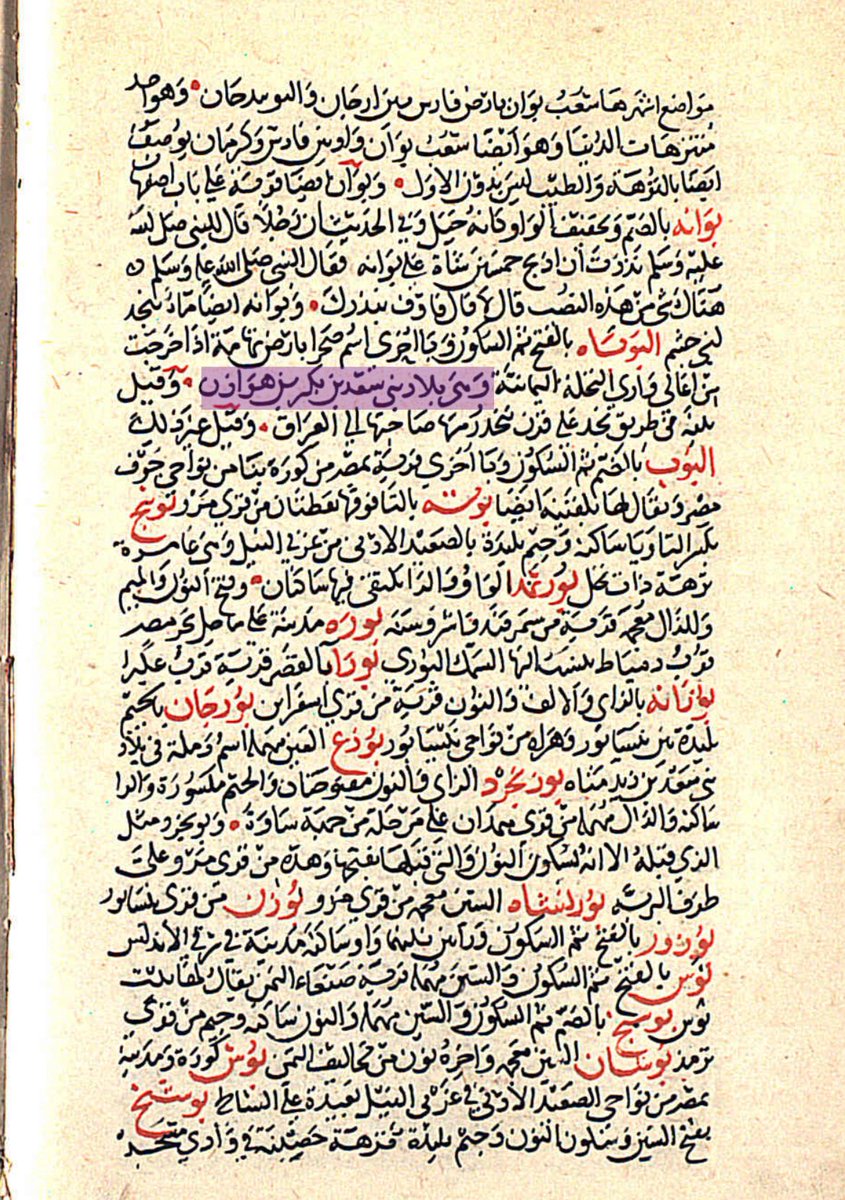 مواضع اشهرها شعب بوان بارض فارس بين ارجان والنوبندجان وهو احد
منتزهات الدنيا وهو ايضا شعب بوان واد بين فارس وكرمان يوصف
ايضا بالنزهة والطيب ليس بدون الاول وبوان ايضا قرية على باب اصفهان
بوانه بالضم وتخفيف الواو كانه جبل وفي الحديث ان رجلا قال للنبي صلى الله
عليه وسلم نذرت ان اذبح خمسين شاة على بوانه فقال النبي صلى الله عليه وسلم
هناك شي من هذه النصب قال لا قال فاوف بنذرك وبوانه ايضا ماء بنجد
لبني جشم البوباه بالفتح ثم السكون وبا اخرى اسم صحرا بارض تهامة اذا خرجت
من اعالي وادي النخلة اليمانية وهي بلاد بني سعد بن بكر بن هوازن وقيل
ثنية في طريق نجد على قرن ينحدر منها صاحبها الى العراق وقيل غير ذلك
البوب بالضم ثم السكون وبا اخرى قرية بمصر من كورة بنا من نواحي حوف
مصر ويقال لها بلقينة ايضا بوته بالتا فوقها نقطتان من قرى مرو بويج
بكسر التا ويا ساكنة وجيم بليدة بالصعيد الادنى من غربي النيل وهي عامرة
نزهة ذات نخل بورنمد الواو والرا يلتقي فيها ساكنان وفتح النون والميم
والذال معجمة قرية من سمرقند واشروسنه بوره مدينة على ساحل بحر مصر
قرب دمياط ينسب اليها السمك البوري بورا بالقصر قرية قرب عكبرا
بوزانه بالزاي والالف والنون قرية من قرى اسفراين بوزجان بالجيم
بليدة بين نيسابور وهراه من نواحي نيسابور بوزع العين مهملة اسم رملة في بلاد
بني سعد بن زيد مناه بوزنجرد الزاي والنون مفتوحتان والجيم مكسورة والرا
ساكنة والدال مهملة من قرى همدان على مرحلة من جهة ساوة وبوزنجرد مثل
الذي قبله الا انه بسكون النون والتي قبلها بفتحها وهذه من قرى مرو على
طرف البرية بوزنشاه الشين معجمة من قرى مرو بوزن من قرى نيسابور
بوزور بالفتح ثم السكون وراين بينهما واو ساكنة مدينة في شرقي الاندلس
بوس بالفتح ثم السكون والسين مهملة قرية صنعاء اليمن يقال لها بيت
بوس بوسنج بالضم ثم السكون والسين مهملة والنون ساكنة وجيم من قرى
ترمذ بوشان الشين معجمة واخره نون من مخاليف اليمن بوش كورة ومدينة
بمصر من نواحي الصعيد الادنى في غربي النيل بعيدة على الشاطئ بوشنج
بفتح الشين وسكون النون وجيم بليدة نزهة حصينة في وادي مشجر